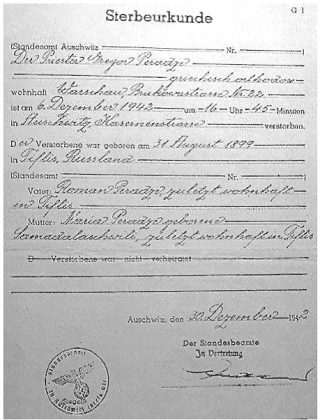 G 1
Sterbeurkunde
(Standesamt Auschwitz Nr.
Der Priester Gregor Peradze
griechisch orthodox
wohnhaft Warschau, Brukowastrasse Nr. 22
ist am 6. Dezember 1942 um 16 Uhr 45 Minuten
in Auschwitz, Kasernenstrasse verstorben.
Der Verstorbene war geboren am 31. August 1899
in Tiflis Russland
(Standesamt Nr.
Vater: Roman Peradze, zuletzt wohnhaft
in Tiflis
Mutter: Maria Peradze geborene
Samadalaschwili, zuletzt wohnhaft in Tiflis
D Verstorbene war nicht verheiratet
Auschwitz, den 30. Dezember 1942
Der Standesbeamte
In Vertretung
Standesamt